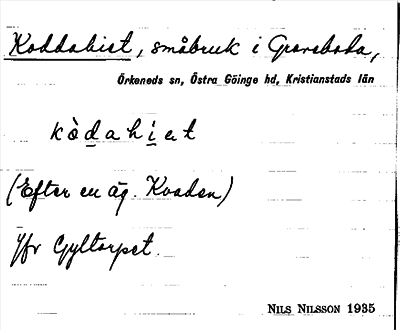 Koddahiet, småbruk i Graveboda,
Örkeneds sn, Östra Göinge hd, Kristianstads län
kòdahiet
(Efter en äg. Kvadden)
Jfr Gyltorpet.
NILS NILSSON 1935